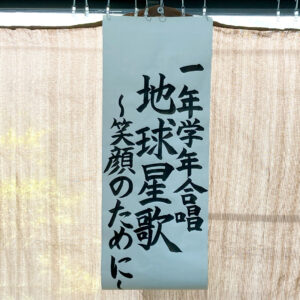 一年学年合唱
地球星歌
~笑顔のために~